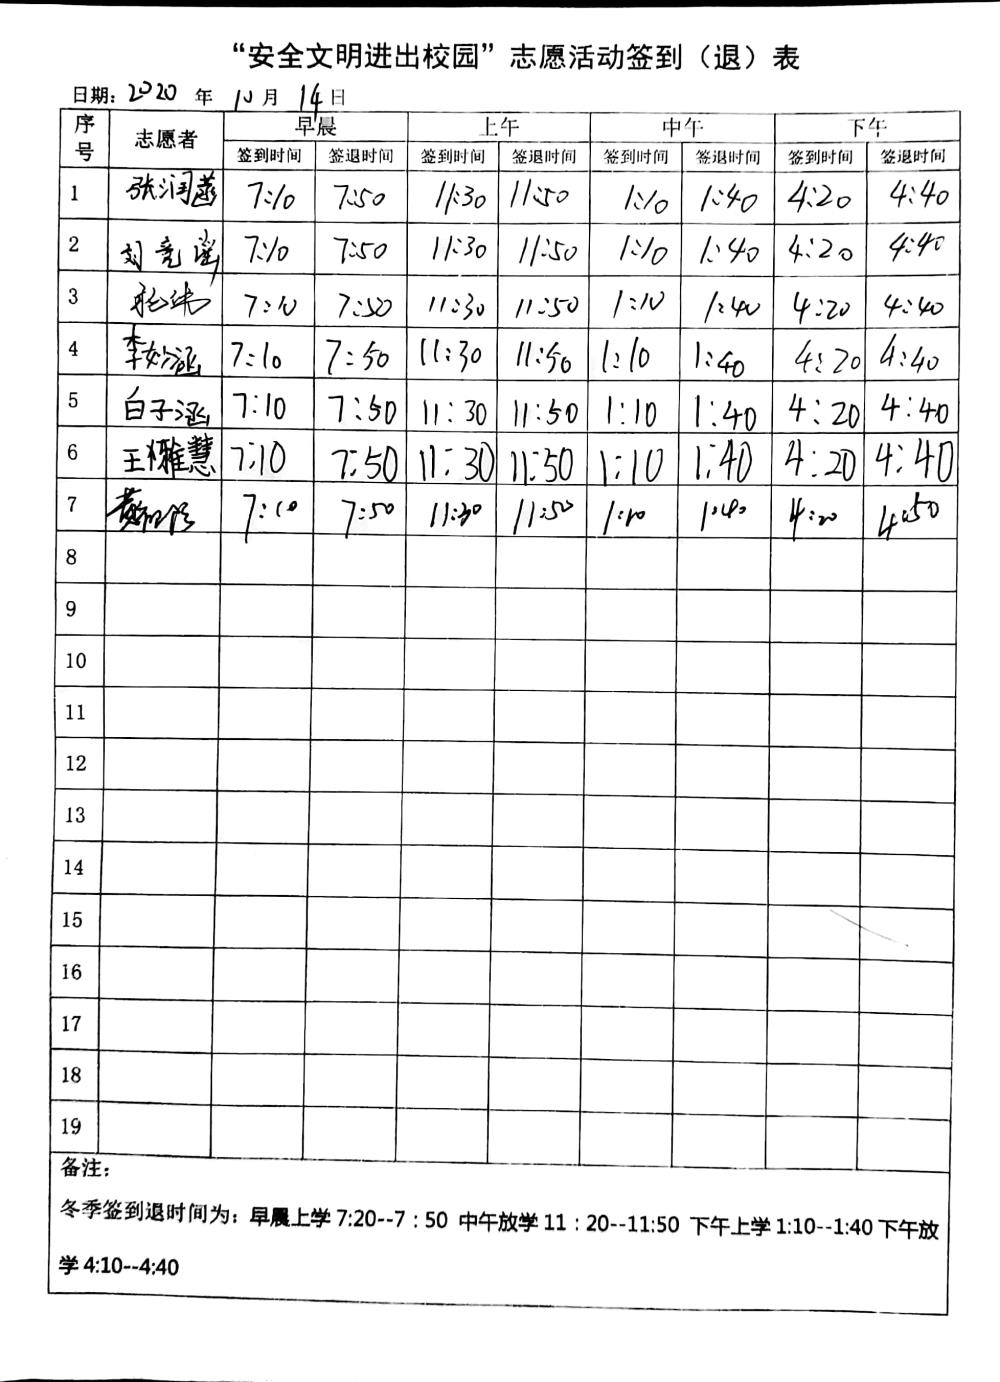 “安全文明进出校园”志愿活动签到（退）表
日期：2020 年 10 月 14 日
序号 志愿者 早晨 上午 中午 下午
签到时间 签退时间 签到时间 签退时间 签到时间 签退时间 签到时间 签退时间
1 张润 7:10 7:50 11:30 11:50 1:10 1:40 4:20 4:40
2 刘竞瑶 7:10 7:50 11:30 11:50 1:10 1:40 4:20 4:40
3 7:10 7:50 11:30 11:50 1:10 1:40 4:20 4:40
4 李妙涵 7:10 7:50 11:30 11:50 1:10 1:40 4:20 4:40
5 白子涵 7:10 7:50 11:30 11:50 1:10 1:40 4:20 4:40
6 王雅慧 7:10 7:50 11:30 11:50 1:10 1:40 4:20 4:40
7 黄 7:10 7:50 11:30 11:50 1:10 1:40 4:20 4:50
8
9
10
11
12
13
14
15
16
17
18
19
备注：
冬季签到退时间为：早晨上学 7:20--7：50 中午放学 11：20--11:50 下午上学 1:10--1:40 下午放
学 4:10--4:40